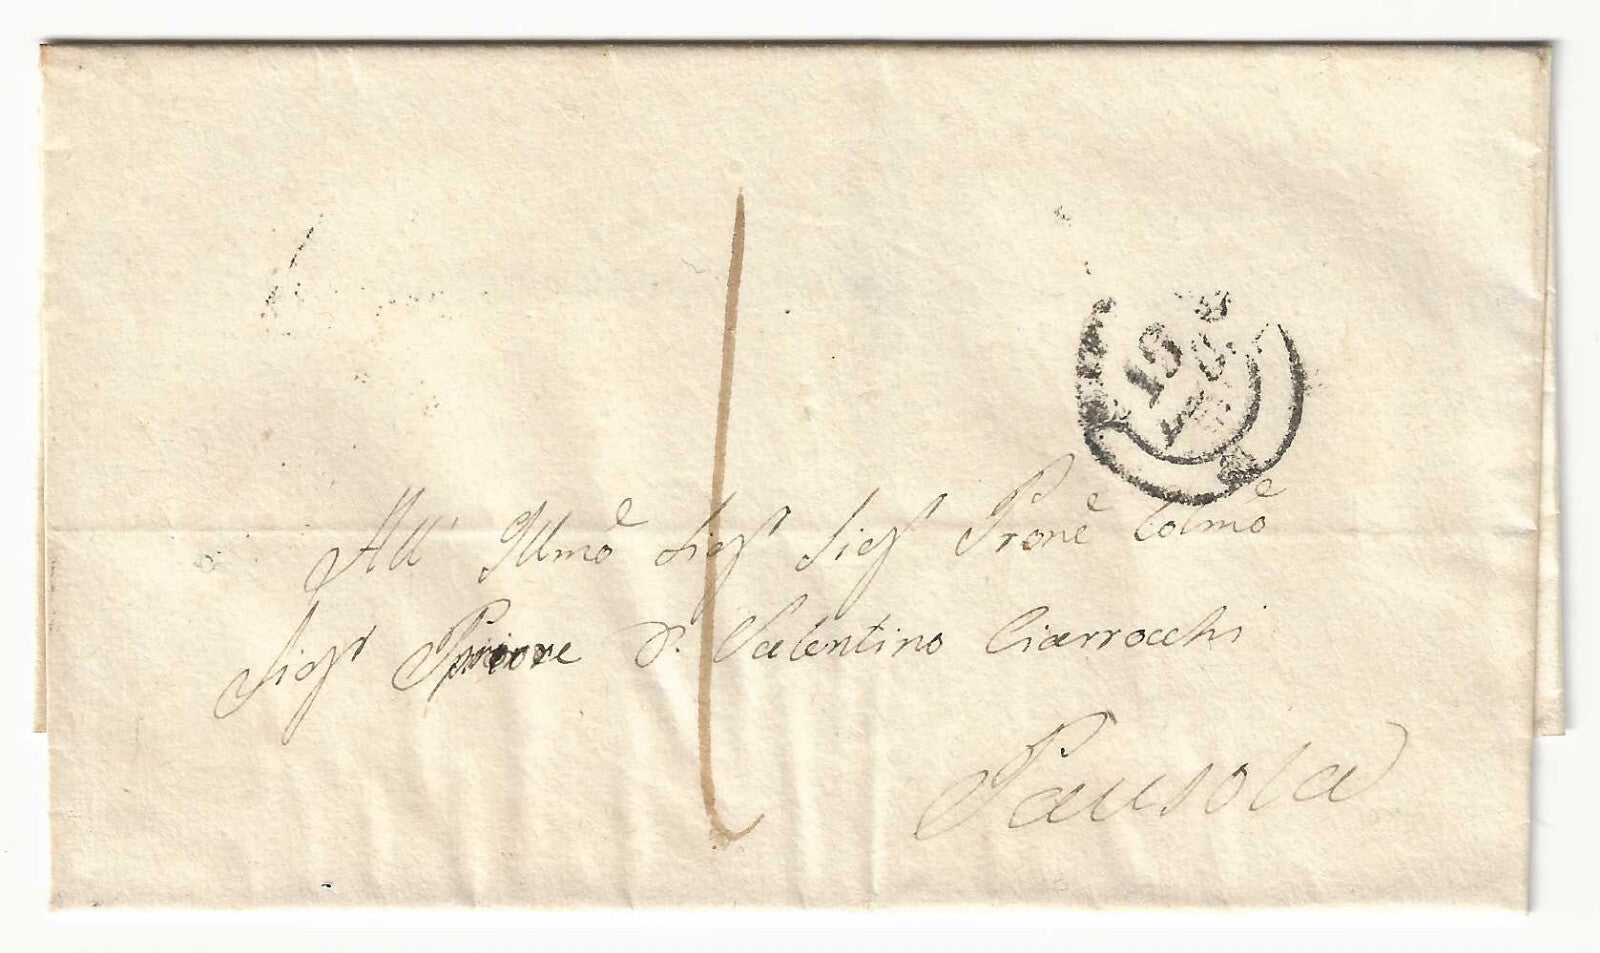 19
All' Illmo Sigr Sigr Prone Colmo
Sigr Priore D. Valentino Ciarrocchi
Pausola